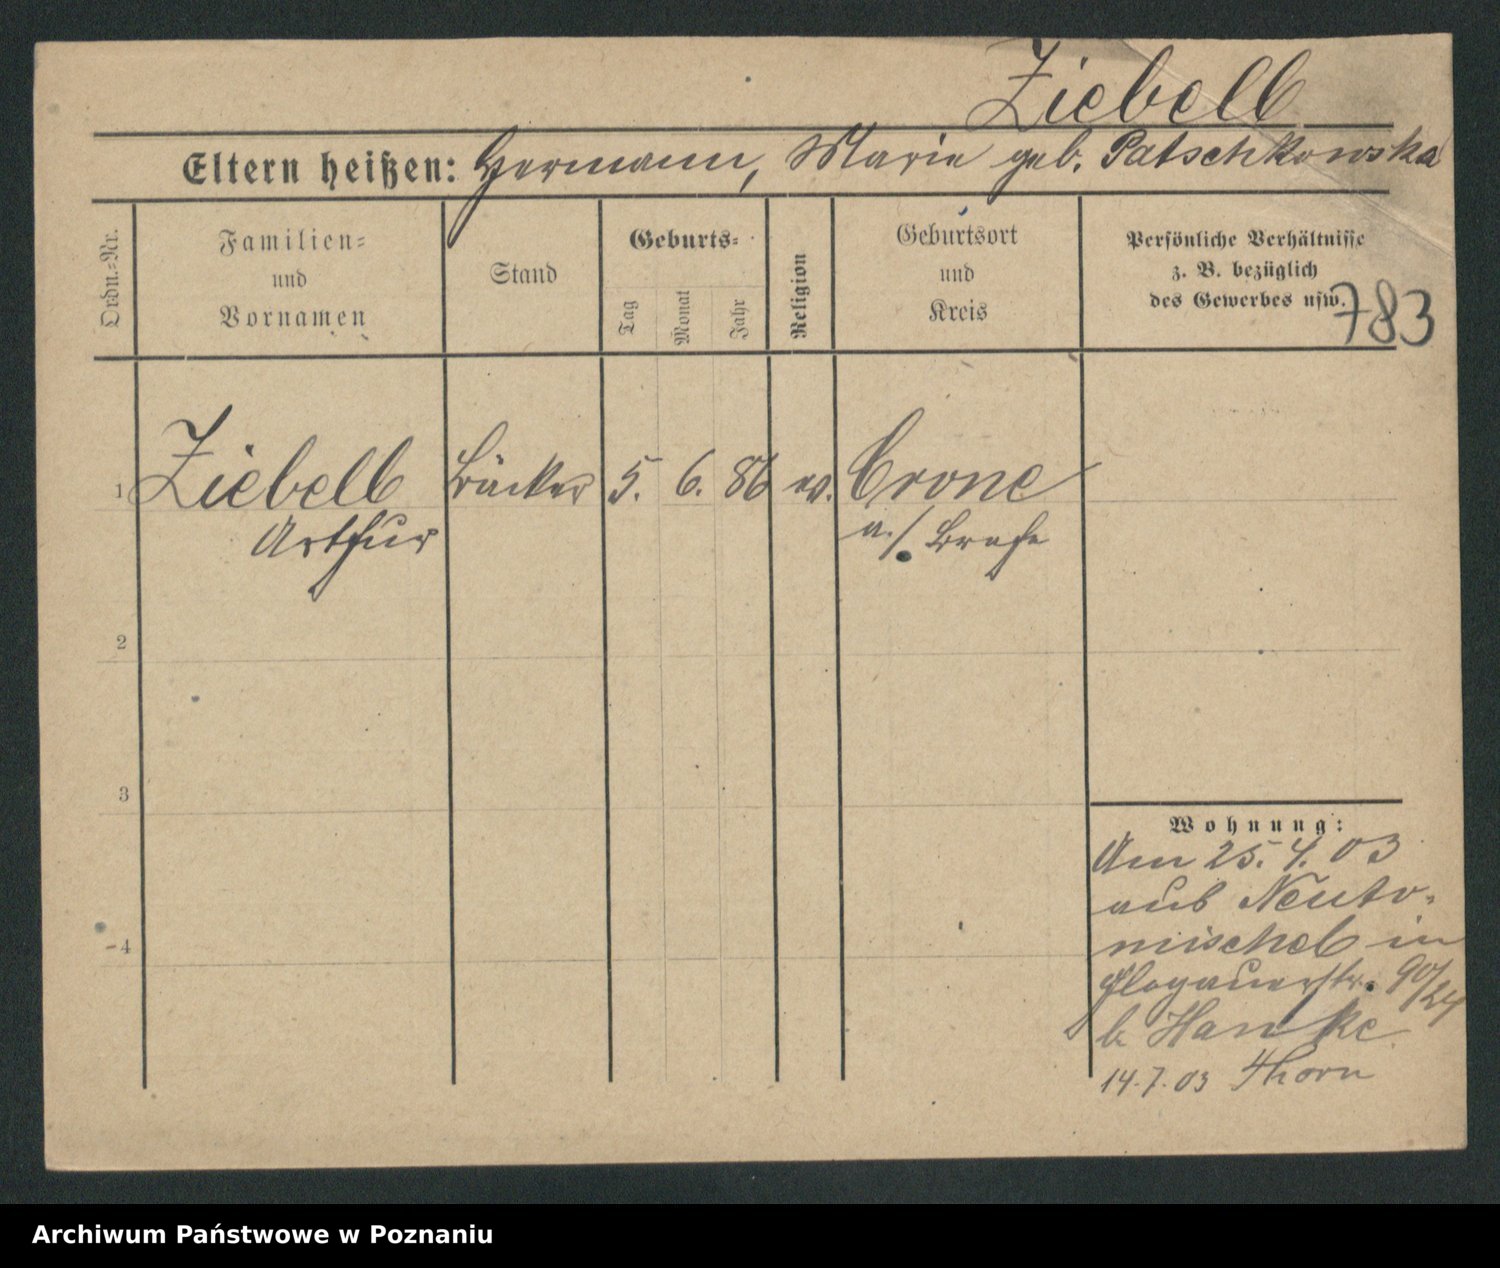 Ziebell
Eltern heißen: Hermann, Marie geb. Patschkowska
Ordn.=Nr.
Familien=
und
Vornamen
Stand
Geburts=
Tag
Monat
Jahr
Religion
Geburtsort
und
Kreis
Persönliche Verhältnisse
z. B. bezüglich
des Gewerbes usw.
783
1 Ziebell Bäcker 5. 6. 86 ev. Crone
Arthur a./ Brahe
2
3
4
Wohnung:
Am 25. 4. 03
aus Neuto-
mischel in
Glogauerstr. 90/24
b. Hanke
14.7.03 Thorn
Archiwum Państwowe w Poznaniu